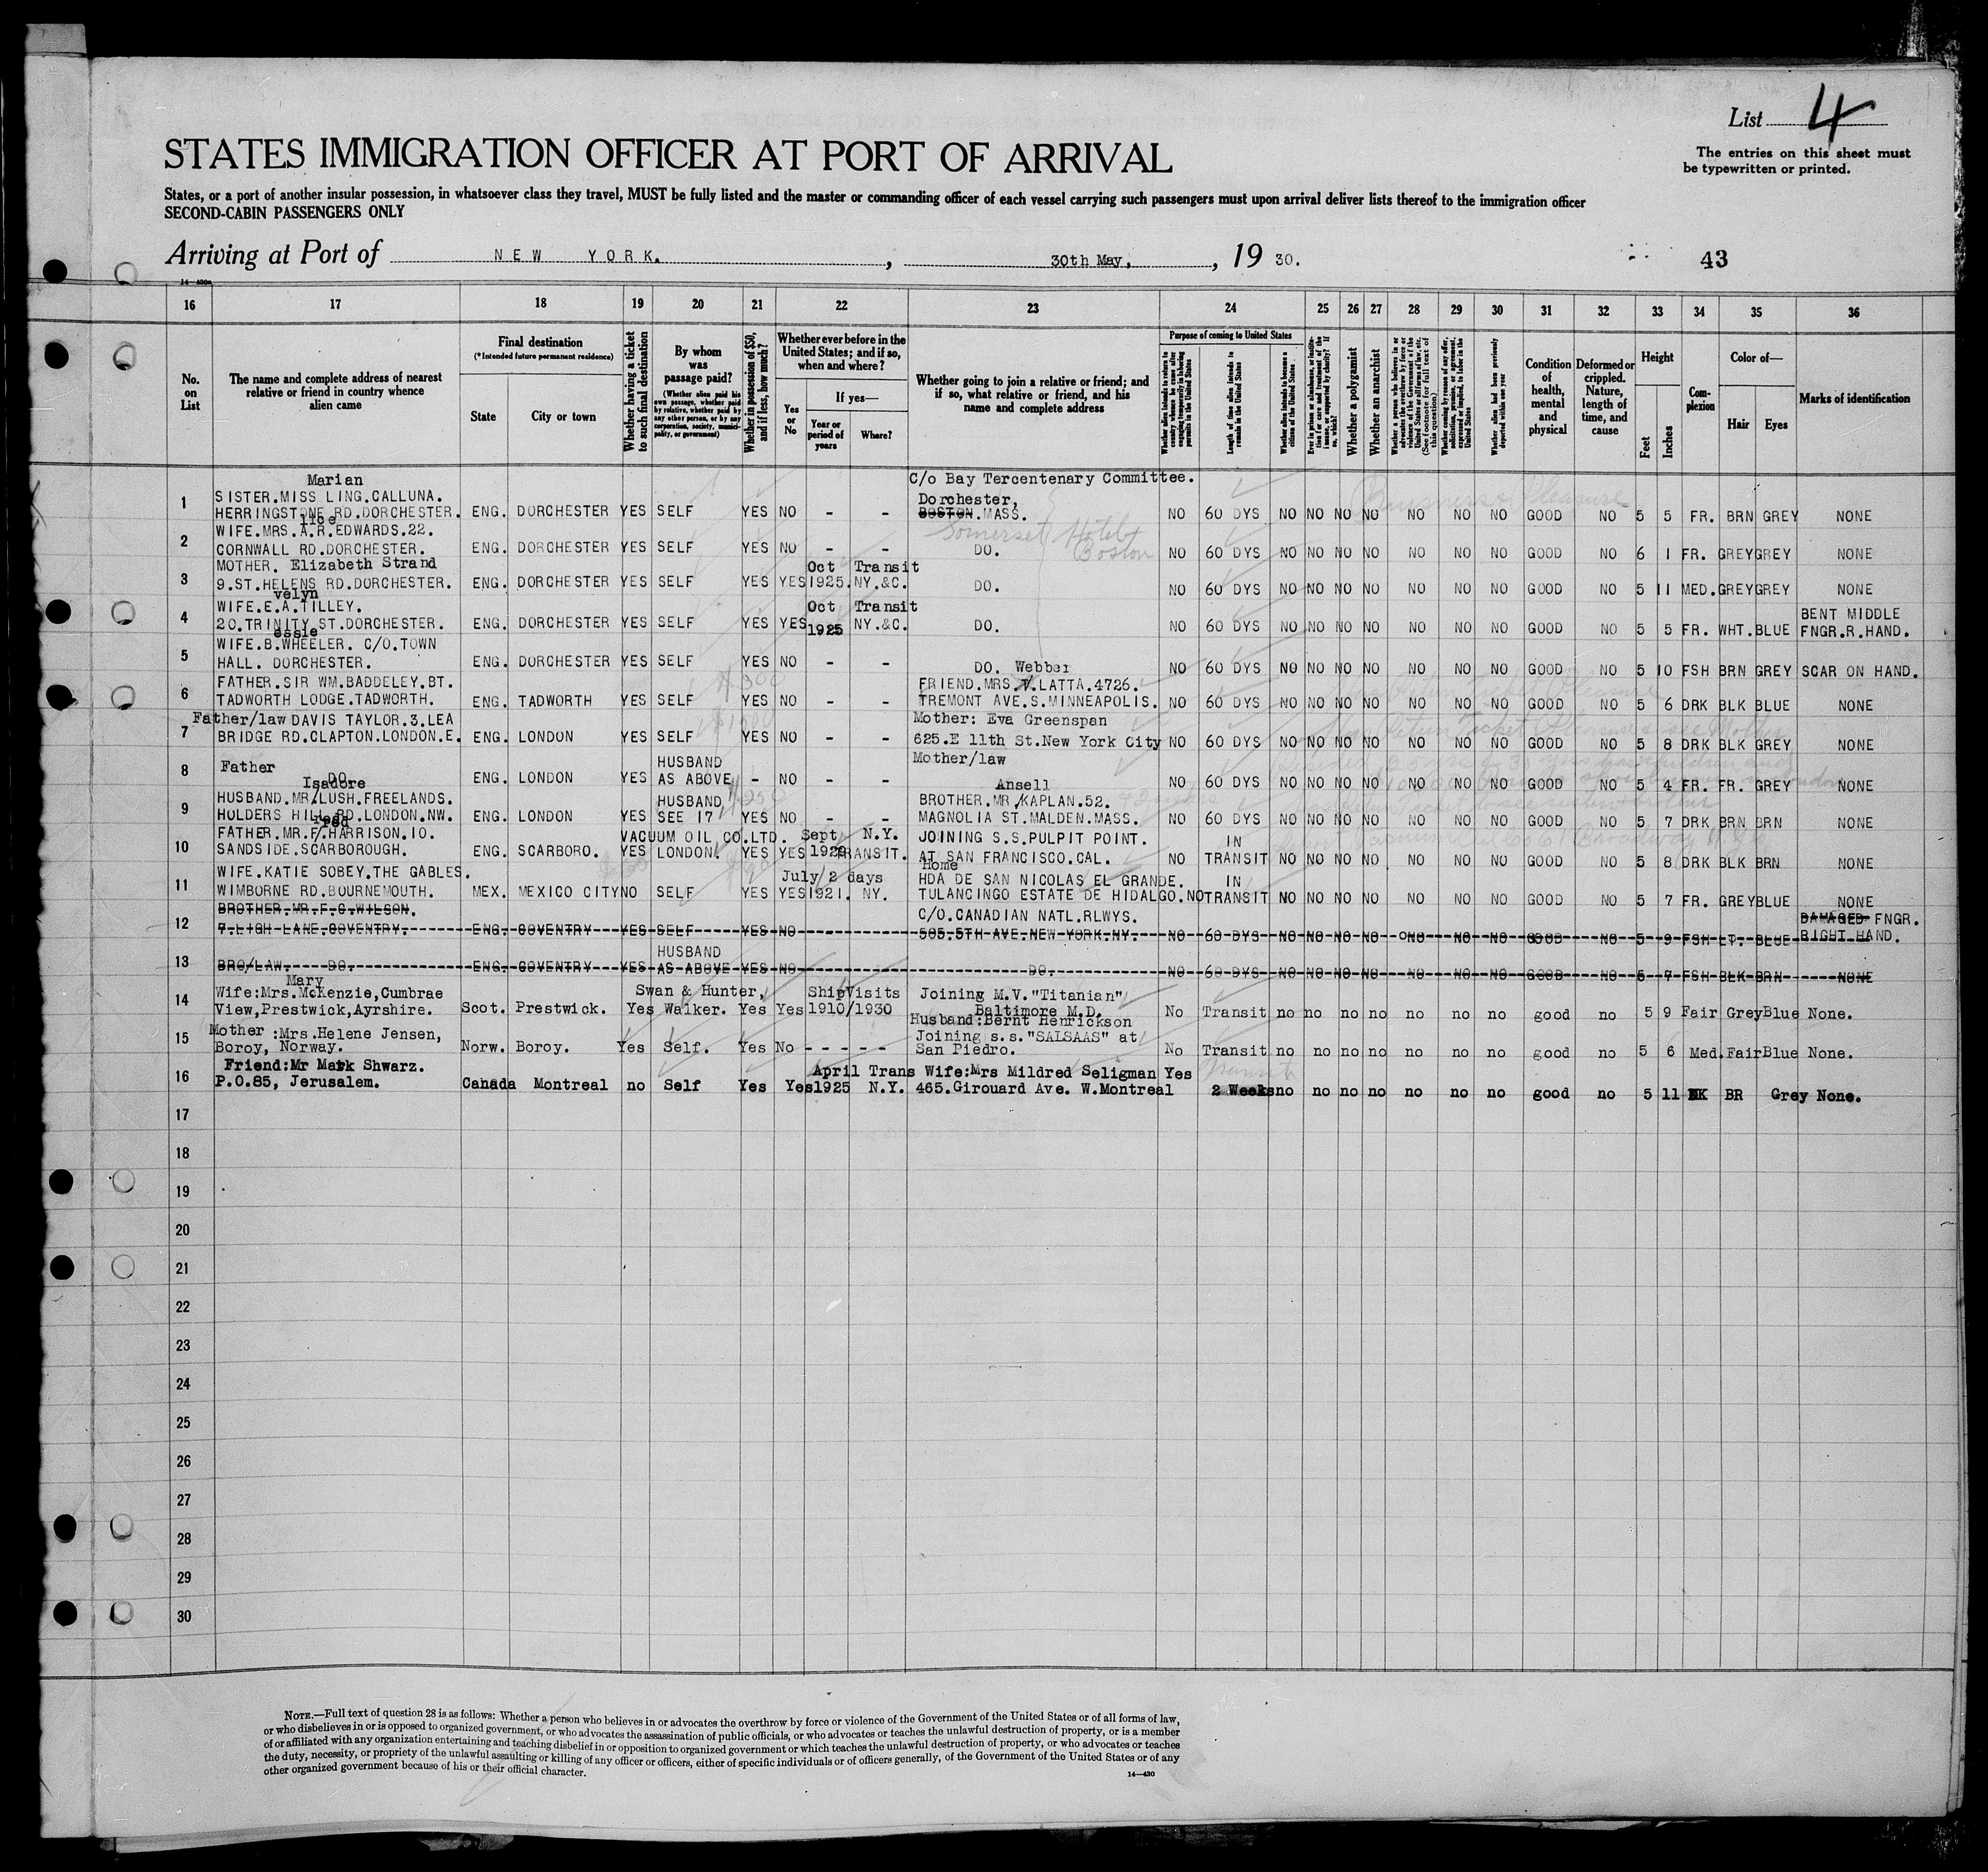 List 4
The entries on this sheet must
be typewritten or printed.
STATES IMMIGRATION OFFICER AT PORT OF ARRIVAL
States, or a port of another insular possession, in whatsoever class they travel, MUST be fully listed and the master or commanding officer of each vessel carrying such passengers must upon arrival deliver lists thereof to the immigration officer
SECOND-CABIN PASSENGERS ONLY
Arriving at Port of NEW YORK. , 30th May, , 19 30.
43
16 17 18 19 20 21 22 23 24 25 26 27 28 29 30 31 32 33 34 35 36
No. on List
The name and complete address of nearest relative or friend in country whence alien came
Final destination
(*Intended future permanent residence)
State
City or town
Whether having a ticket to such final destination
By whom was passage paid?
(Whether alien paid his own passage, whether paid by relative, whether paid by any other person, or by any corporation, society, municipality, or government)
Whether in possession of $50, and if less, how much?
Whether ever before in the United States; and if so, when and where?
Yes or No
If yes—
Year or period of years
Where?
Whether going to join a relative or friend; and if so, what relative or friend, and his name and complete address
Purpose of coming to United States
Length of time alien intends to remain in the United States
Whether alien intends to become a citizen of the United States
Whether a polygamist
Whether an anarchist
Condition of health, mental and physical
Deformed or crippled. Nature, length of time, and cause
Height
Feet
Inches
Complexion
Color of—
Hair
Eyes
Marks of identification
Marian C/o Bay Tercentenary Committee.
SISTER.MISS LING.CALLUNA. Dorchester,
1 HERRINGSTONE RD.DORCHESTER. ENG. DORCHESTER YES SELF YES NO - - BOSTON.MASS. NO 60 DYS NO NO NO NO NO NO NO GOOD NO 5 5 FR. BRN GREY NONE
lice
WIFE.MRS.A.R.EDWARDS.22. Somerset Hotel
2 CORNWALL RD.DORCHESTER. ENG. DORCHESTER YES SELF YES NO - - DO. Boston NO 60 DYS NO NO NO NO NO NO NO GOOD NO 6 1 FR. GREY GREY NONE
MOTHER. Elizabeth Strand Oct Transit
3 9.ST.HELENS RD.DORCHESTER. ENG. DORCHESTER YES SELF YES YES 1925. NY.&C. DO. NO 60 DYS NO NO NO NO NO NO NO GOOD NO 5 11 MED. GREY GREY NONE
velyn
WIFE.E.A.TILLEY. Oct Transit BENT MIDDLE
4 20.TRINITY ST.DORCHESTER. ENG. DORCHESTER YES SELF YES YES 1925 NY.&C. DO. NO 60 DYS NO NO NO NO NO NO NO GOOD NO 5 5 FR. WHT. BLUE FNGR.R.HAND.
essie
WIFE.B.WHEELER. C/O.TOWN
5 HALL. DORCHESTER. ENG. DORCHESTER YES SELF YES NO - - DO. NO 60 DYS NO NO NO NO NO NO NO GOOD NO 5 10 FSH BRN GREY SCAR ON HAND.
Webber
FATHER.SIR WM.BADDELEY.BT. FRIEND.MRS.V.LATTA.4726.
6 TADWORTH LODGE.TADWORTH. ENG. TADWORTH YES SELF YES NO - - TREMONT AVE.S.MINNEAPOLIS. NO 60 DYS NO NO NO NO NO NO NO GOOD NO 5 6 DRK BLK BLUE NONE
Father/law DAVIS TAYLOR.3.LEA Mother: Eva Greenspan
7 BRIDGE RD.CLAPTON.LONDON.E. ENG. LONDON YES SELF YES NO - - 625.E 11th St.New York City NO 60 DYS NO NO NO NO NO NO NO GOOD NO 5 8 DRK BLK GREY NONE
Father HUSBAND Mother/law
8 DO. ENG. LONDON YES AS ABOVE - NO - - NO 60 DYS NO NO NO NO NO NO NO GOOD NO 5 4 FR. FR. GREY NONE
Isadore Ansell
HUSBAND.MR/LUSH.FREELANDS. HUSBAND BROTHER.MR/KAPLAN.52.
9 HOLDERS HILL RD.LONDON.NW. ENG. LONDON YES SEE 17 YES NO - - MAGNOLIA ST.MALDEN.MASS. NO 60 DYS NO NO NO NO NO NO NO GOOD NO 5 7 DRK BRN BRN NONE
red
FATHER.MR.F/HARRISON.10. VACUUM OIL CO.LTD. Sept N.Y. JOINING S.S.PULPIT POINT. IN
10 SANDSIDE.SCARBOROUGH. ENG. SCARBORO. YES LONDON. YES YES 1929 TRANSIT. AT SAN FRANCISCO.CAL. NO TRANSIT NO NO NO NO NO NO NO GOOD NO 5 8 DRK BLK BRN NONE
Home
WIFE.KATIE SOBEY.THE GABLES. July/2 days HDA DE SAN NICOLAS EL GRANDE. IN
11 WIMBORNE RD.BOURNEMOUTH. MEX. MEXICO CITY NO SELF YES YES 1921. NY. TULANCINGO ESTATE DE HIDALGO. NO TRANSIT NO NO NO NO NO NO NO GOOD NO 5 7 FR. GREY BLUE NONE
BROTHER.MR.F.G.WILSON. C/O.CANADIAN NATL.RLWYS. DAMAGED FNGR.
12 7.LIGH LANE.COVENTRY. ENG. COVENTRY YES SELF YES NO 505.5TH AVE.NEW YORK.NY. NO 60 DYS NO NO NO NO NO NO NO GOOD NO 5 9 FSH LT. BLUE RIGHT HAND.
HUSBAND
13 BRO/LAW. DO. ENG. COVENTRY YES AS ABOVE YES NO DO. NO 60 DYS NO NO NO NO NO NO NO GOOD NO 5 7 FSH BLK BRN NONE
Mary
Wife:Mrs.McKenzie,Cumbrae Swan & Hunter, Ship Visits Joining M.V."Titanian"
14 View,Prestwick,Ayrshire. Scot. Prestwick. Yes Walker. Yes Yes 1910/1930 Baltimore M.D. No Transit no no no no no no no good no 5 9 Fair Grey Blue None.
Husband:Bernt Henrickson
Mother :Mrs.Helene Jensen, Joining s.s."SALSAAS" at
15 Boroy, Norway. Norw. Boroy. Yes Self. Yes No - - - - - San Piedro. No Transit no no no no no no no good no 5 6 Med. Fair Blue None.
Friend:Mr Mark Shwarz. April Trans Wife:Mrs Mildred Seligman Yes Transit
16 P.O.85, Jerusalem. Canada Montreal no Self Yes Yes 1925 N.Y. 465.Girouard Ave. W.Montreal 2 Weeks no no no no no no no good no 5 11 DK BR Grey None.
17
18
19
20
21
22
23
24
25
26
27
28
29
30
NOTE.—Full text of question 28 is as follows: Whether a person who believes in or advocates the overthrow by force or violence of the Government of the United States or of all forms of law,
or who disbelieves in or is opposed to organized government, or who advocates the assassination of public officials, or who advocates or teaches the unlawful destruction of property, or is a member
of or affiliated with any organization entertaining and teaching disbelief in or opposition to organized government or which teaches the unlawful destruction of property, or who advocates or teaches
the duty, necessity, or propriety of the unlawful assaulting or killing of any officer or officers, either of specific individuals or of officers generally, of the Government of the United States or of any
other organized government because of his or their official character.
14—430